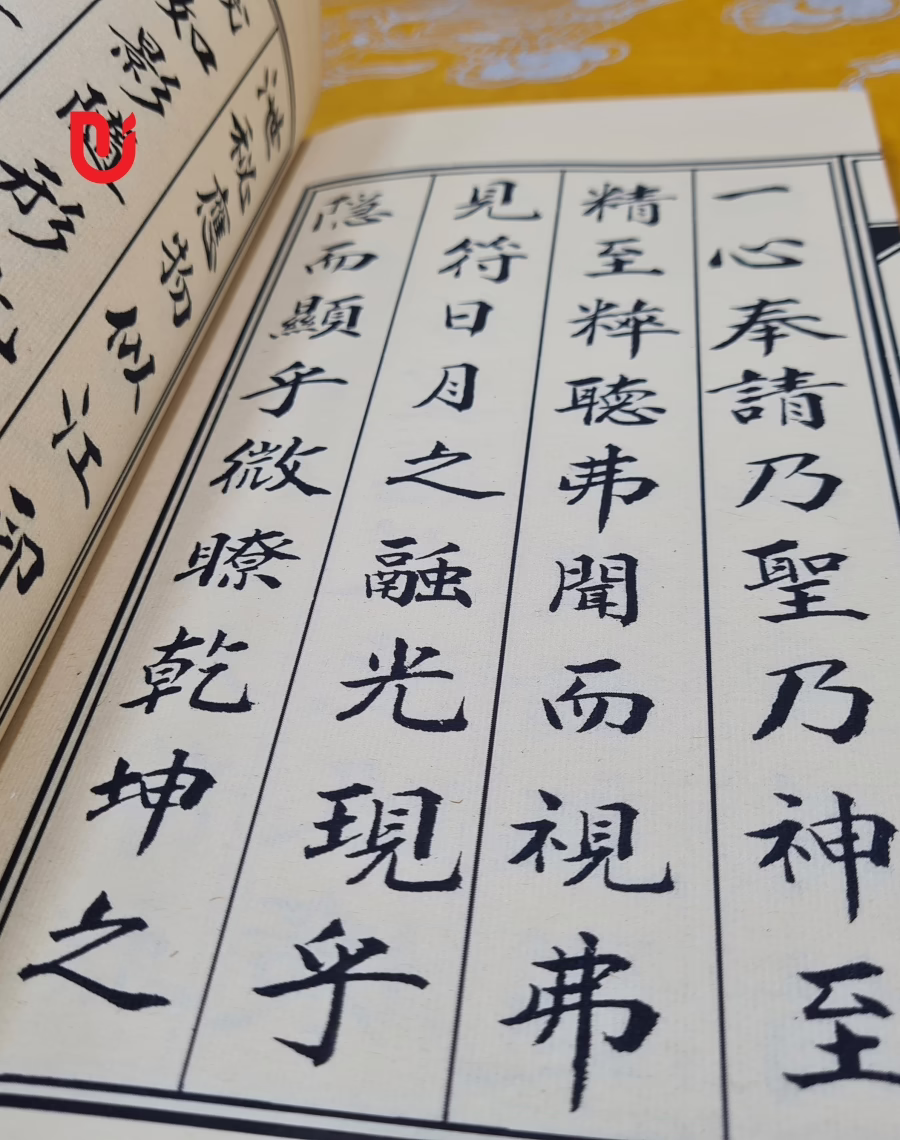 一心奉請乃聖乃神至
精至粹聽弗聞而視弗
見符日月之融光現乎
隱而顯乎微瞭乾坤之
應物而江印
如影隨形